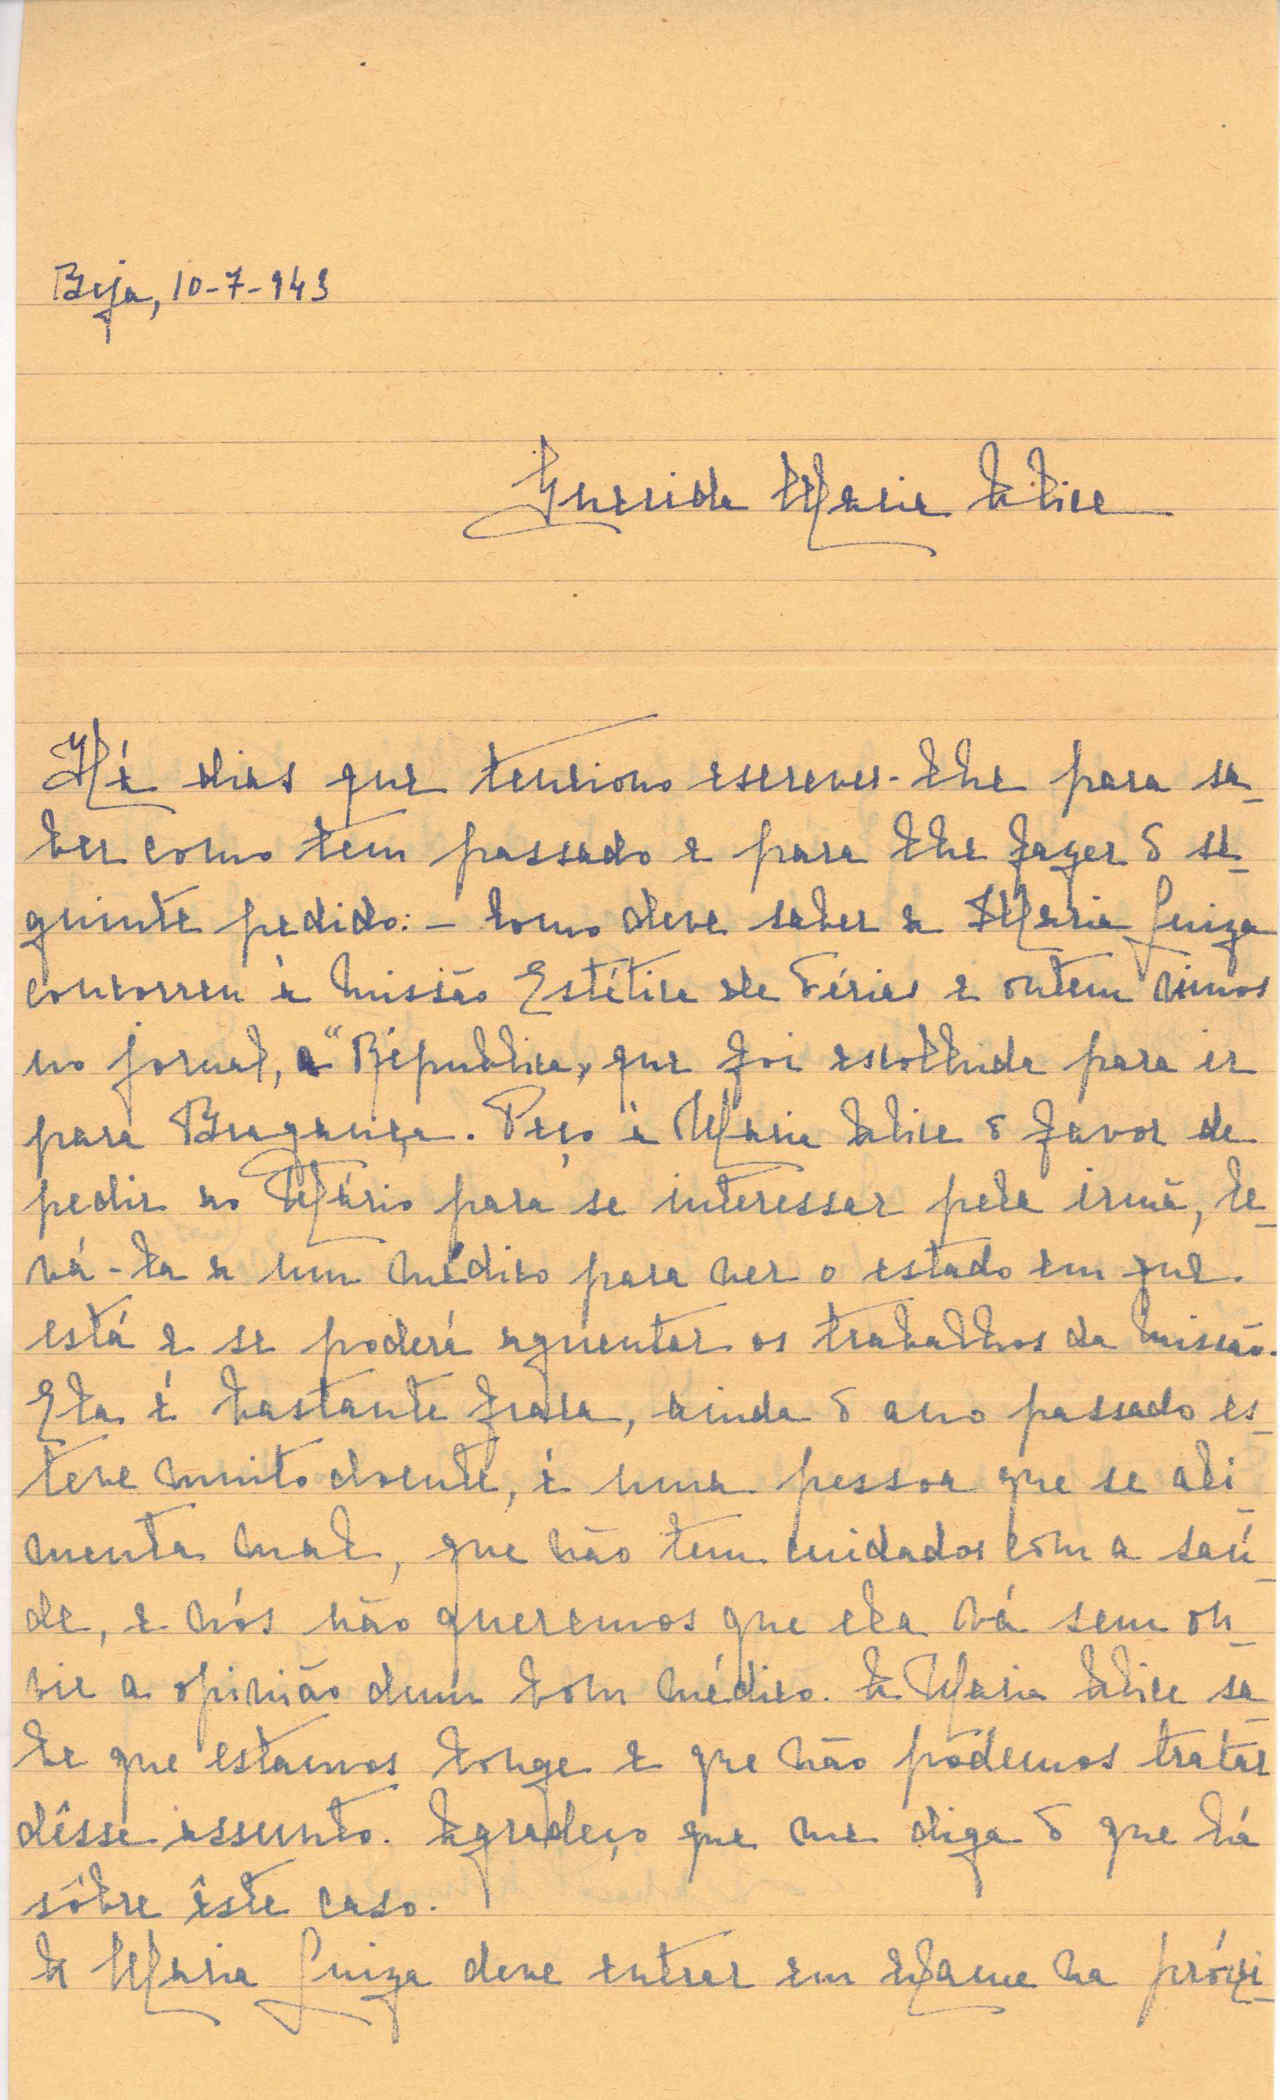 Beja, 10-7-943
Querida Maria Alice
Há dias que tenciono escrever-lhe para sa_
ber como tem passado e para lhe fazer o se_
guinte pedido: - Como deve saber a Maria Luiza
concorreu à Missão Estética de Férias e ontem vimos
no jornal, a "República" que foi escolhida para ir
para Bragança. Peço à Maria Alice o favor de
pedir ao Mário para se interessar pela irmã, le_
vá-la a um médico para ver o estado em que
está e se poderá aguentar os trabalhos da Missão.
Ela é bastante fraca, ainda o ano passado es_
teve muito doente, é uma pessoa que se ali_
menta mal, que não tem cuidados com a saú_
de, e nós não queremos que ela vá sem ou_
vir a opinião dum bom médico. A Maria Alice sa_
be que estamos longe e que não podemos tratar
dêsse assunto. Agradeço que me diga o que há
sôbre êste caso.
A Maria Luiza deve entrar em exame na próxi_